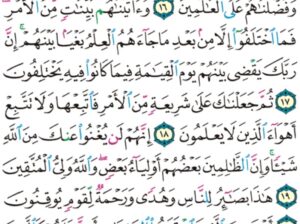 وَفَضَّلْنَٰهُمْ عَلَى ٱلْعَٰلَمِينَ ١٦ وَءَاتَيْنَٰهُم بَيِّنَٰتٍ مِّنَ ٱلْأَمْرِ
فَمَا ٱخْتَلَفُوٓا۟ إِلَّا مِنۢ بَعْدِ مَا جَآءَهُمُ ٱلْعِلْمُ بَغْيًۢا بَيْنَهُمْ إِنَّ
رَبَّكَ يَقْضِى بَيْنَهُمْ يَوْمَ ٱلْقِيَٰمَةِ فِيمَا كَانُوا۟ فِيهِ يَخْتَلِفُونَ
١٧ ثُمَّ جَعَلْنَٰكَ عَلَىٰ شَرِيعَةٍ مِّنَ ٱلْأَمْرِ فَٱتَّبِعْهَا وَلَا تَتَّبِعْ
أَهْوَآءَ ٱلَّذِينَ لَا يَعْلَمُونَ ١٨ إِنَّهُمْ لَن يُغْنُوا۟ عَنكَ مِنَ ٱللَّهِ
شَيْـًٔا وَإِنَّ ٱلظَّٰلِمِينَ بَعْضُهُمْ أَوْلِيَآءُ بَعْضٍ وَٱللَّهُ وَلِىُّ ٱلْمُتَّقِينَ
١٩ هَٰذَا بَصَٰٓئِرُ لِلنَّاسِ وَهُدًى وَرَحْمَةٌ لِّقَوْمٍ يُوقِنُونَ